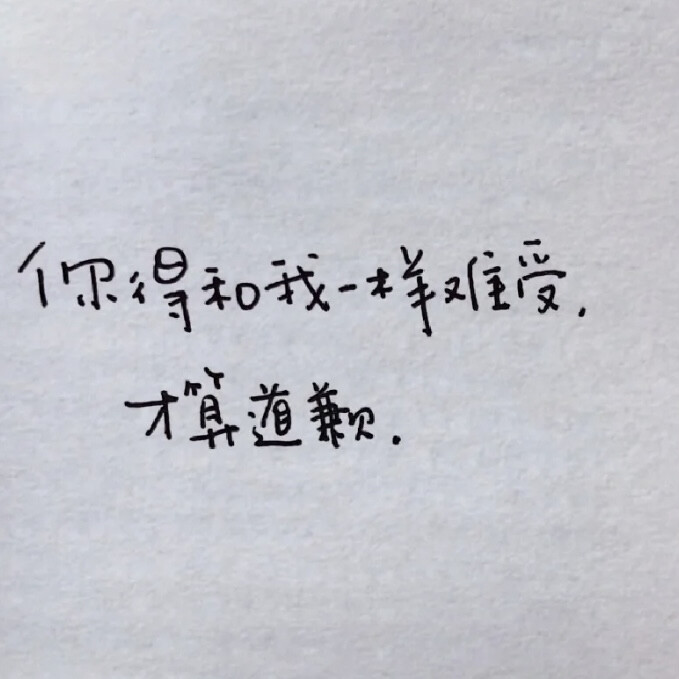 你得和我一样难受.
才算道歉.